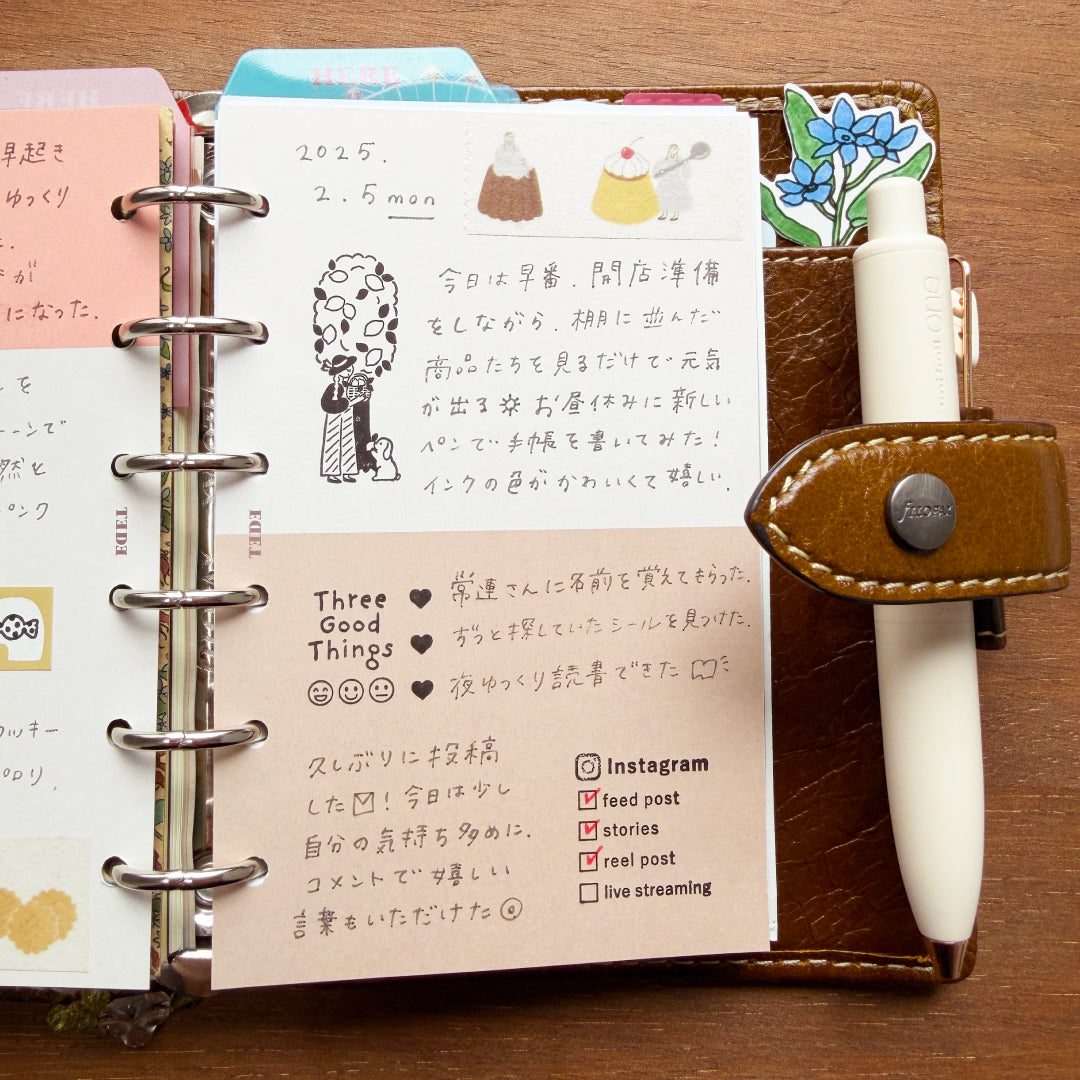 HERE
HERE
早起き
ゆっくり
た.
が
になった.
を
ーンで
然と
ペンク
クッキー
ポロリ.
TED
2025.
2.5 mon
今日は早番. 開店準備
をしながら. 棚に並んだ
商品たちを見るだけで元気
が出る お昼休みに新しい
ペンで手帳を書いてみた!
インクの色がかわいくて嬉しい.
TED
Three
Good
Things
常連さんに名前を覚えてもらった.
ずっと探していたシールを見つけた.
夜ゆっくり読書できた
久しぶりに投稿
した! 今日は少し
自分の気持ち多めに.
コメントで嬉しい
言葉もいただけた
Instagram
feed post
stories
reel post
live streaming
ONO
filofax